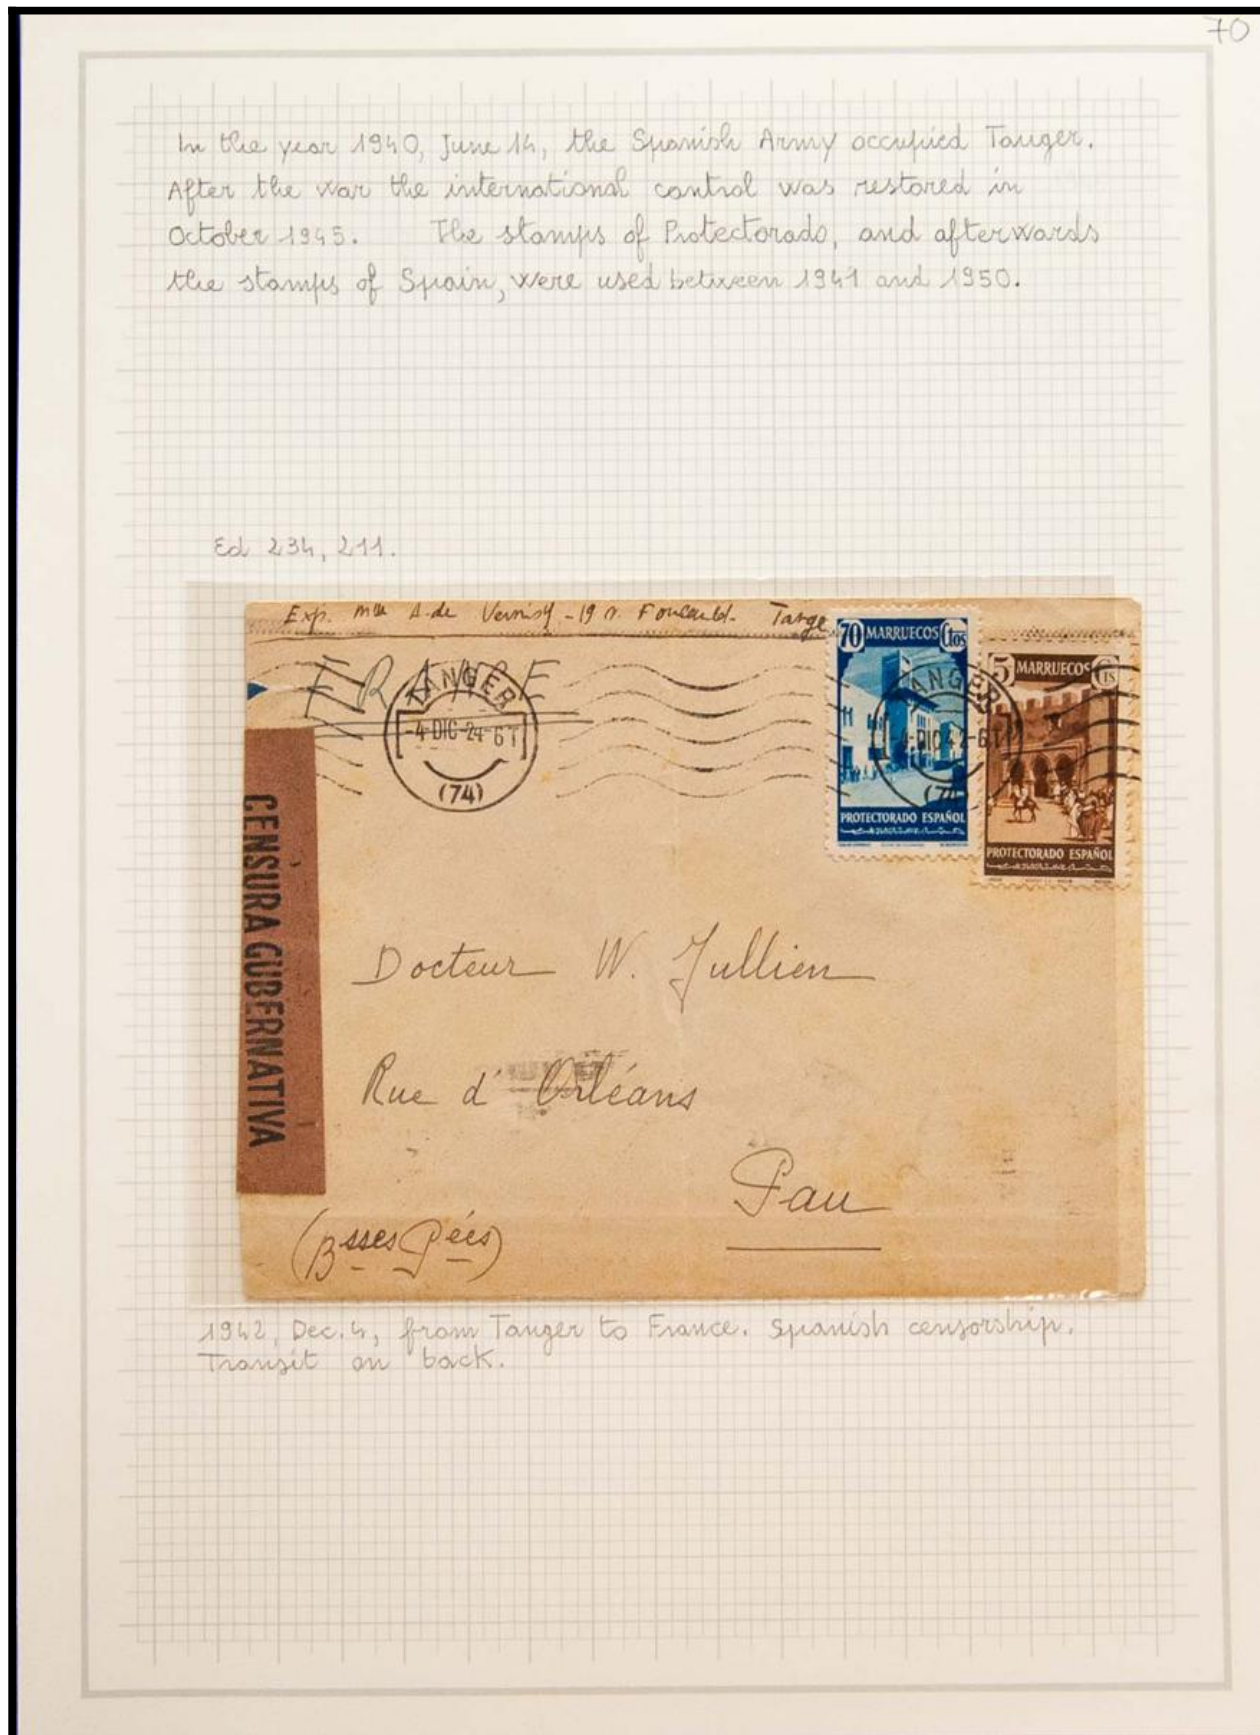 70
In the year 1940, June 14, the Spanish Army occupied Tanger.
After the war the international control was restored in
October 1945. The stamps of Protectorado, and afterwards
the stamps of Spain, were used between 1941 and 1950.
Ed 234, 211.
Exp. A. de - 19 r. Foucauld. Tange
FRANCE
TANGER
-4 DIC-24-6T
(74)
70 MARRUECOS Ctos
PROTECTORADO ESPAÑOL
5 MARRUECOS Cts
PROTECTORADO ESPAÑOL
TANGER
-4 DIC 42-6T
(74
CENSURA GUBERNATIVA
Docteur W. Jullien
Rue d'Orléans
Pau
(Bsses Pées)
1942, Dec. 4, from Tanger to France. Spanish censorship.
Transit on back.